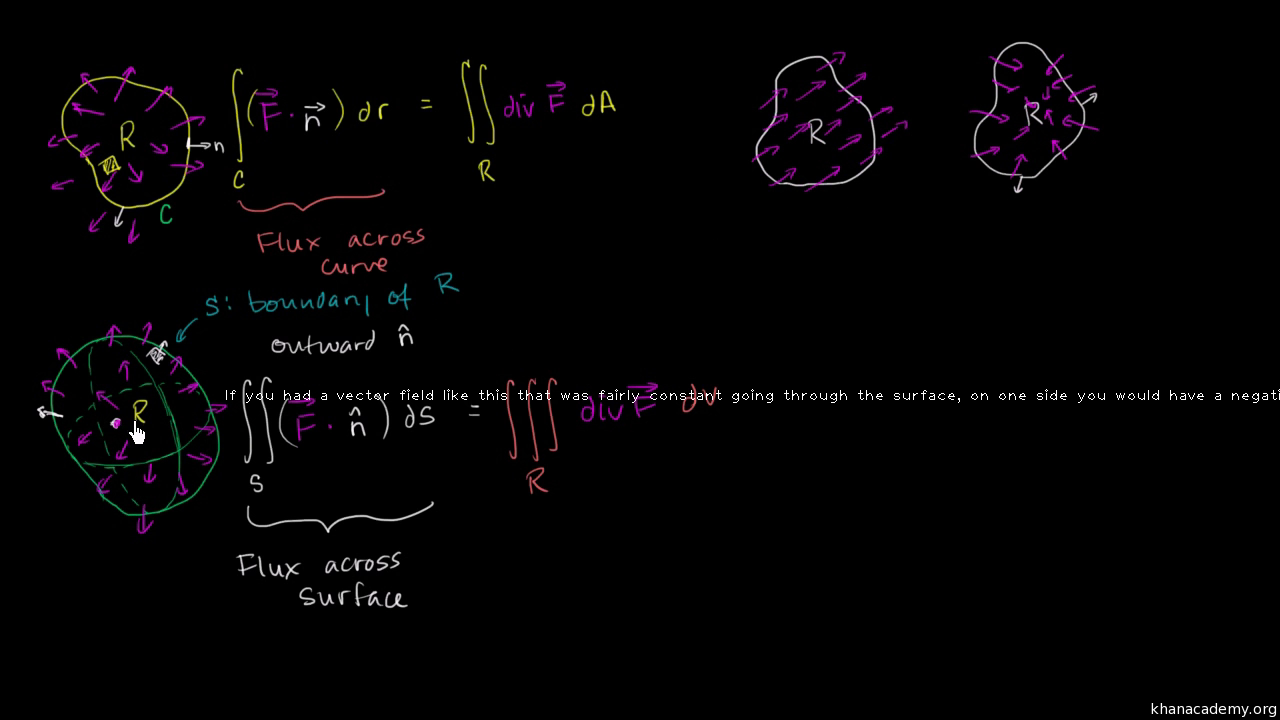 R
n
C
∫_C (F⃗ · n⃗) dr = ∬_R div F⃗ dA
Flux across
curve
R
R
S: boundary of R
outward n̂
R
∬_S (F⃗ · n̂) dS = ∭_R div F⃗ dv
If you had a vector field like this that was fairly constant going through the surface, on one side you would have a negati
Flux across
surface
khanacademy.org